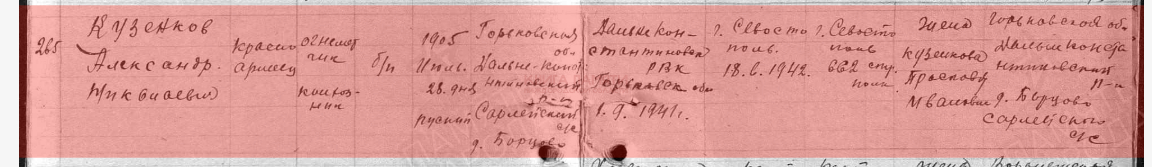 265
Кузенков
Александр.
Николаевич
красно
армеец
огнемет
чик
конюх-
ник
б/п
1905
Июль.
28. дня
русский
Горьковская
об-
Дальне-конст
нтиновский
р-н
Сарлейский
с/с
д. Борцово
Дальнекон-
стантиновск
РВК
Горьковск. обл
1. 9. 1941г.
г. Севосто
поль.
18. 6. 1942.
г. Севосто
поль
662 стр.
полк.
Жена
кузенкова
Прасковья
Ивановна
Горьковской об-
Дальнеконста
нтиновский
р-н
д. Борцово
Сарлейского
с/с